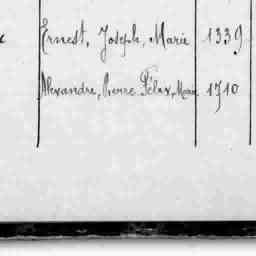 Ernest, Joseph, Marie 1339
Alexandre, Pierre Félix, Marie 1710